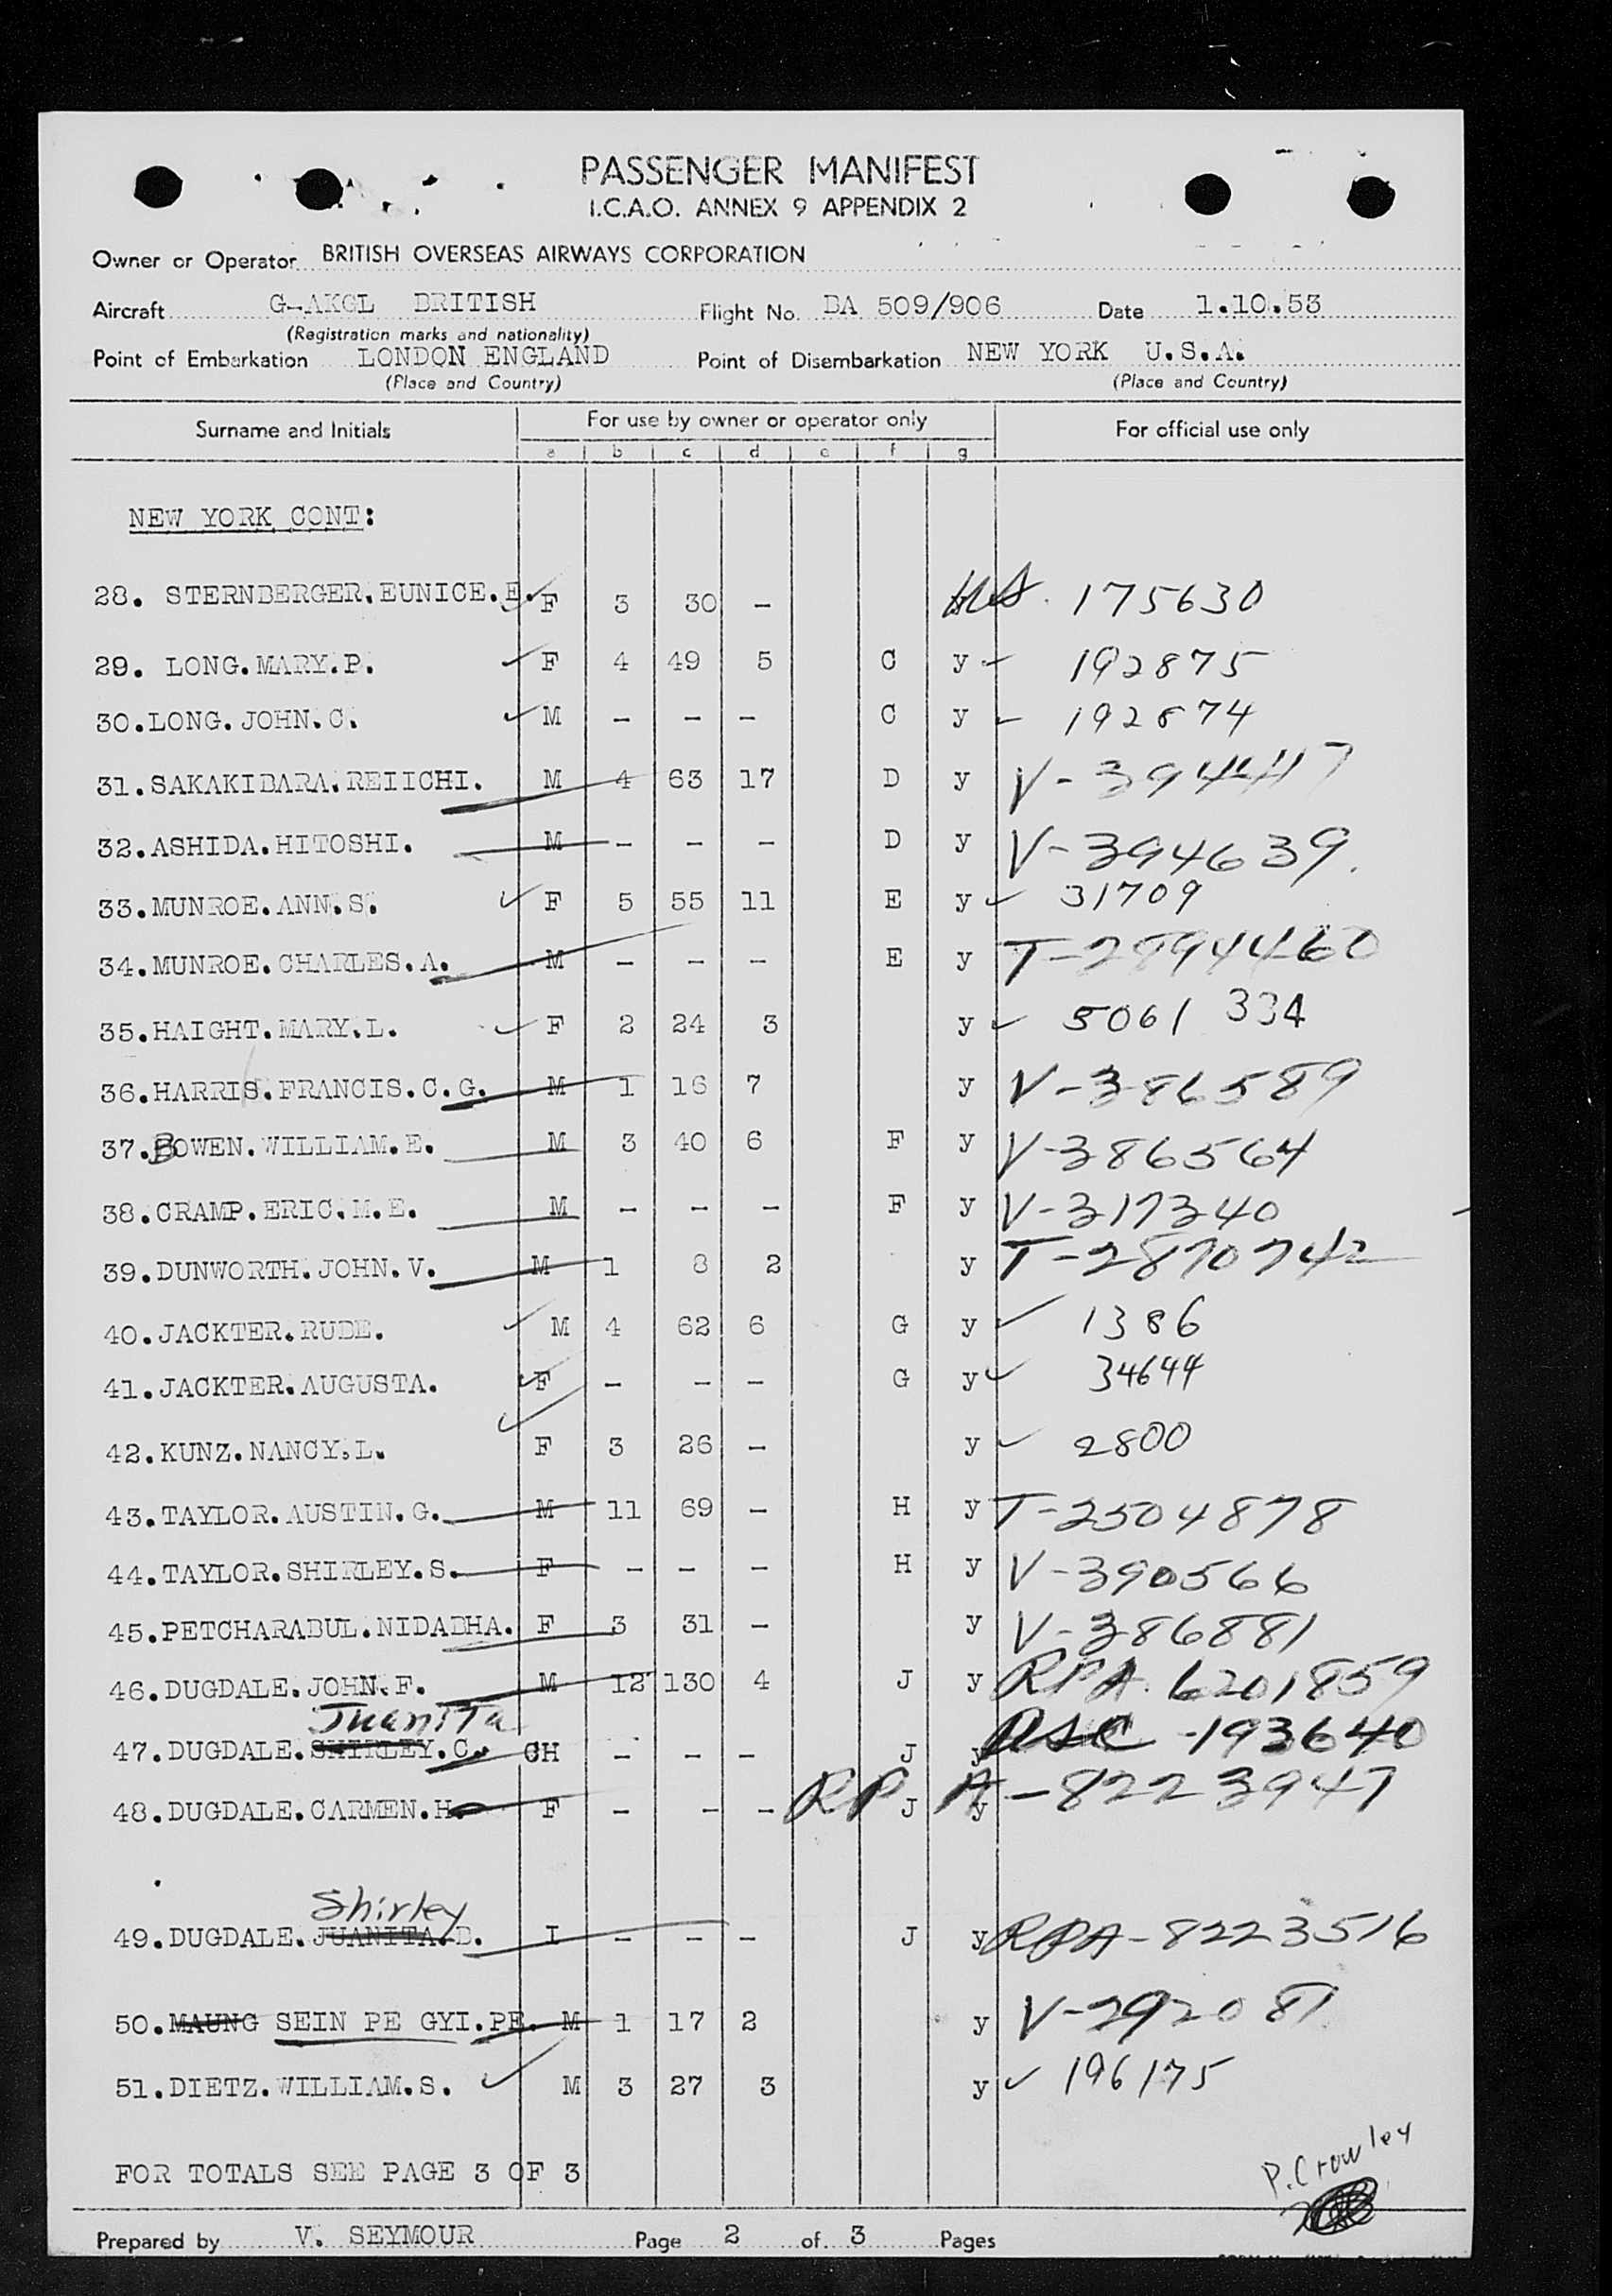 PASSENGER MANIFEST
I.C.A.O. ANNEX 9 APPENDIX 2
Owner or Operator BRITISH OVERSEAS AIRWAYS CORPORATION
Aircraft G-AKGL BRITISH Flight No. BA 509/906 Date 1.10.53
(Registration marks and nationality)
Point of Embarkation LONDON ENGLAND Point of Disembarkation NEW YORK U.S.A.
(Place and Country) (Place and Country)
Surname and Initials For use by owner or operator only For official use only
a b c d e f g
NEW YORK CONT:
28. STERNBERGER.EUNICE.E. F 3 30 - 175630
29. LONG.MARY.P. F 4 49 5 C y 192875
30.LONG.JOHN.C. M - - - C y 192874
31.SAKAKIBARA.REIICHI. M 4 63 17 D y V-394417
32.ASHIDA.HITOSHI. M - - - D y V-394639.
33.MUNROE.ANN.S. F 5 55 11 E y 31709
34.MUNROE.CHARLES.A. M - - - E y T-2894460
35.HAIGHT.MARY.L. F 2 24 3 y 5061 334
36.HARRIS.FRANCIS.C.G. M 1 16 7 y V-386589
37.BOWEN.WILLIAM.E. M 3 40 6 F y V-386564
38.CRAMP.ERIC.M.E. M - - - F y V-317340
39.DUNWORTH.JOHN.V. M 1 8 2 y T-2870742
40.JACKTER.RUDE. M 4 62 6 G y 1386
41.JACKTER.AUGUSTA. F - - - G y 34644
42.KUNZ.NANCY.L. F 3 26 - y 2800
43.TAYLOR.AUSTIN.G. M 11 69 - H y T-2504878
44.TAYLOR.SHIRLEY.S. F - - - H y V-390566
45.PETCHARABUL.NIDABHA. F 3 31 - y V-386881
46.DUGDALE.JOHN.F. M 12 130 4 J y RPA. 6201859
Juanita
47.DUGDALE.SHIRLEY.C. CH - - - J y -193640
48.DUGDALE.CARMEN.H. F - - - J y RPA-8223947
Shirley
49.DUGDALE.JUANITA.D. I - - - J y RPA-8223516
50.MAUNG SEIN PE GYI.PE. M 1 17 2 y V-292081
51.DIETZ.WILLIAM.S. M 3 27 3 y 196175
FOR TOTALS SEE PAGE 3 OF 3
P. Crowley
Prepared by V. SEYMOUR Page 2 of 3 Pages